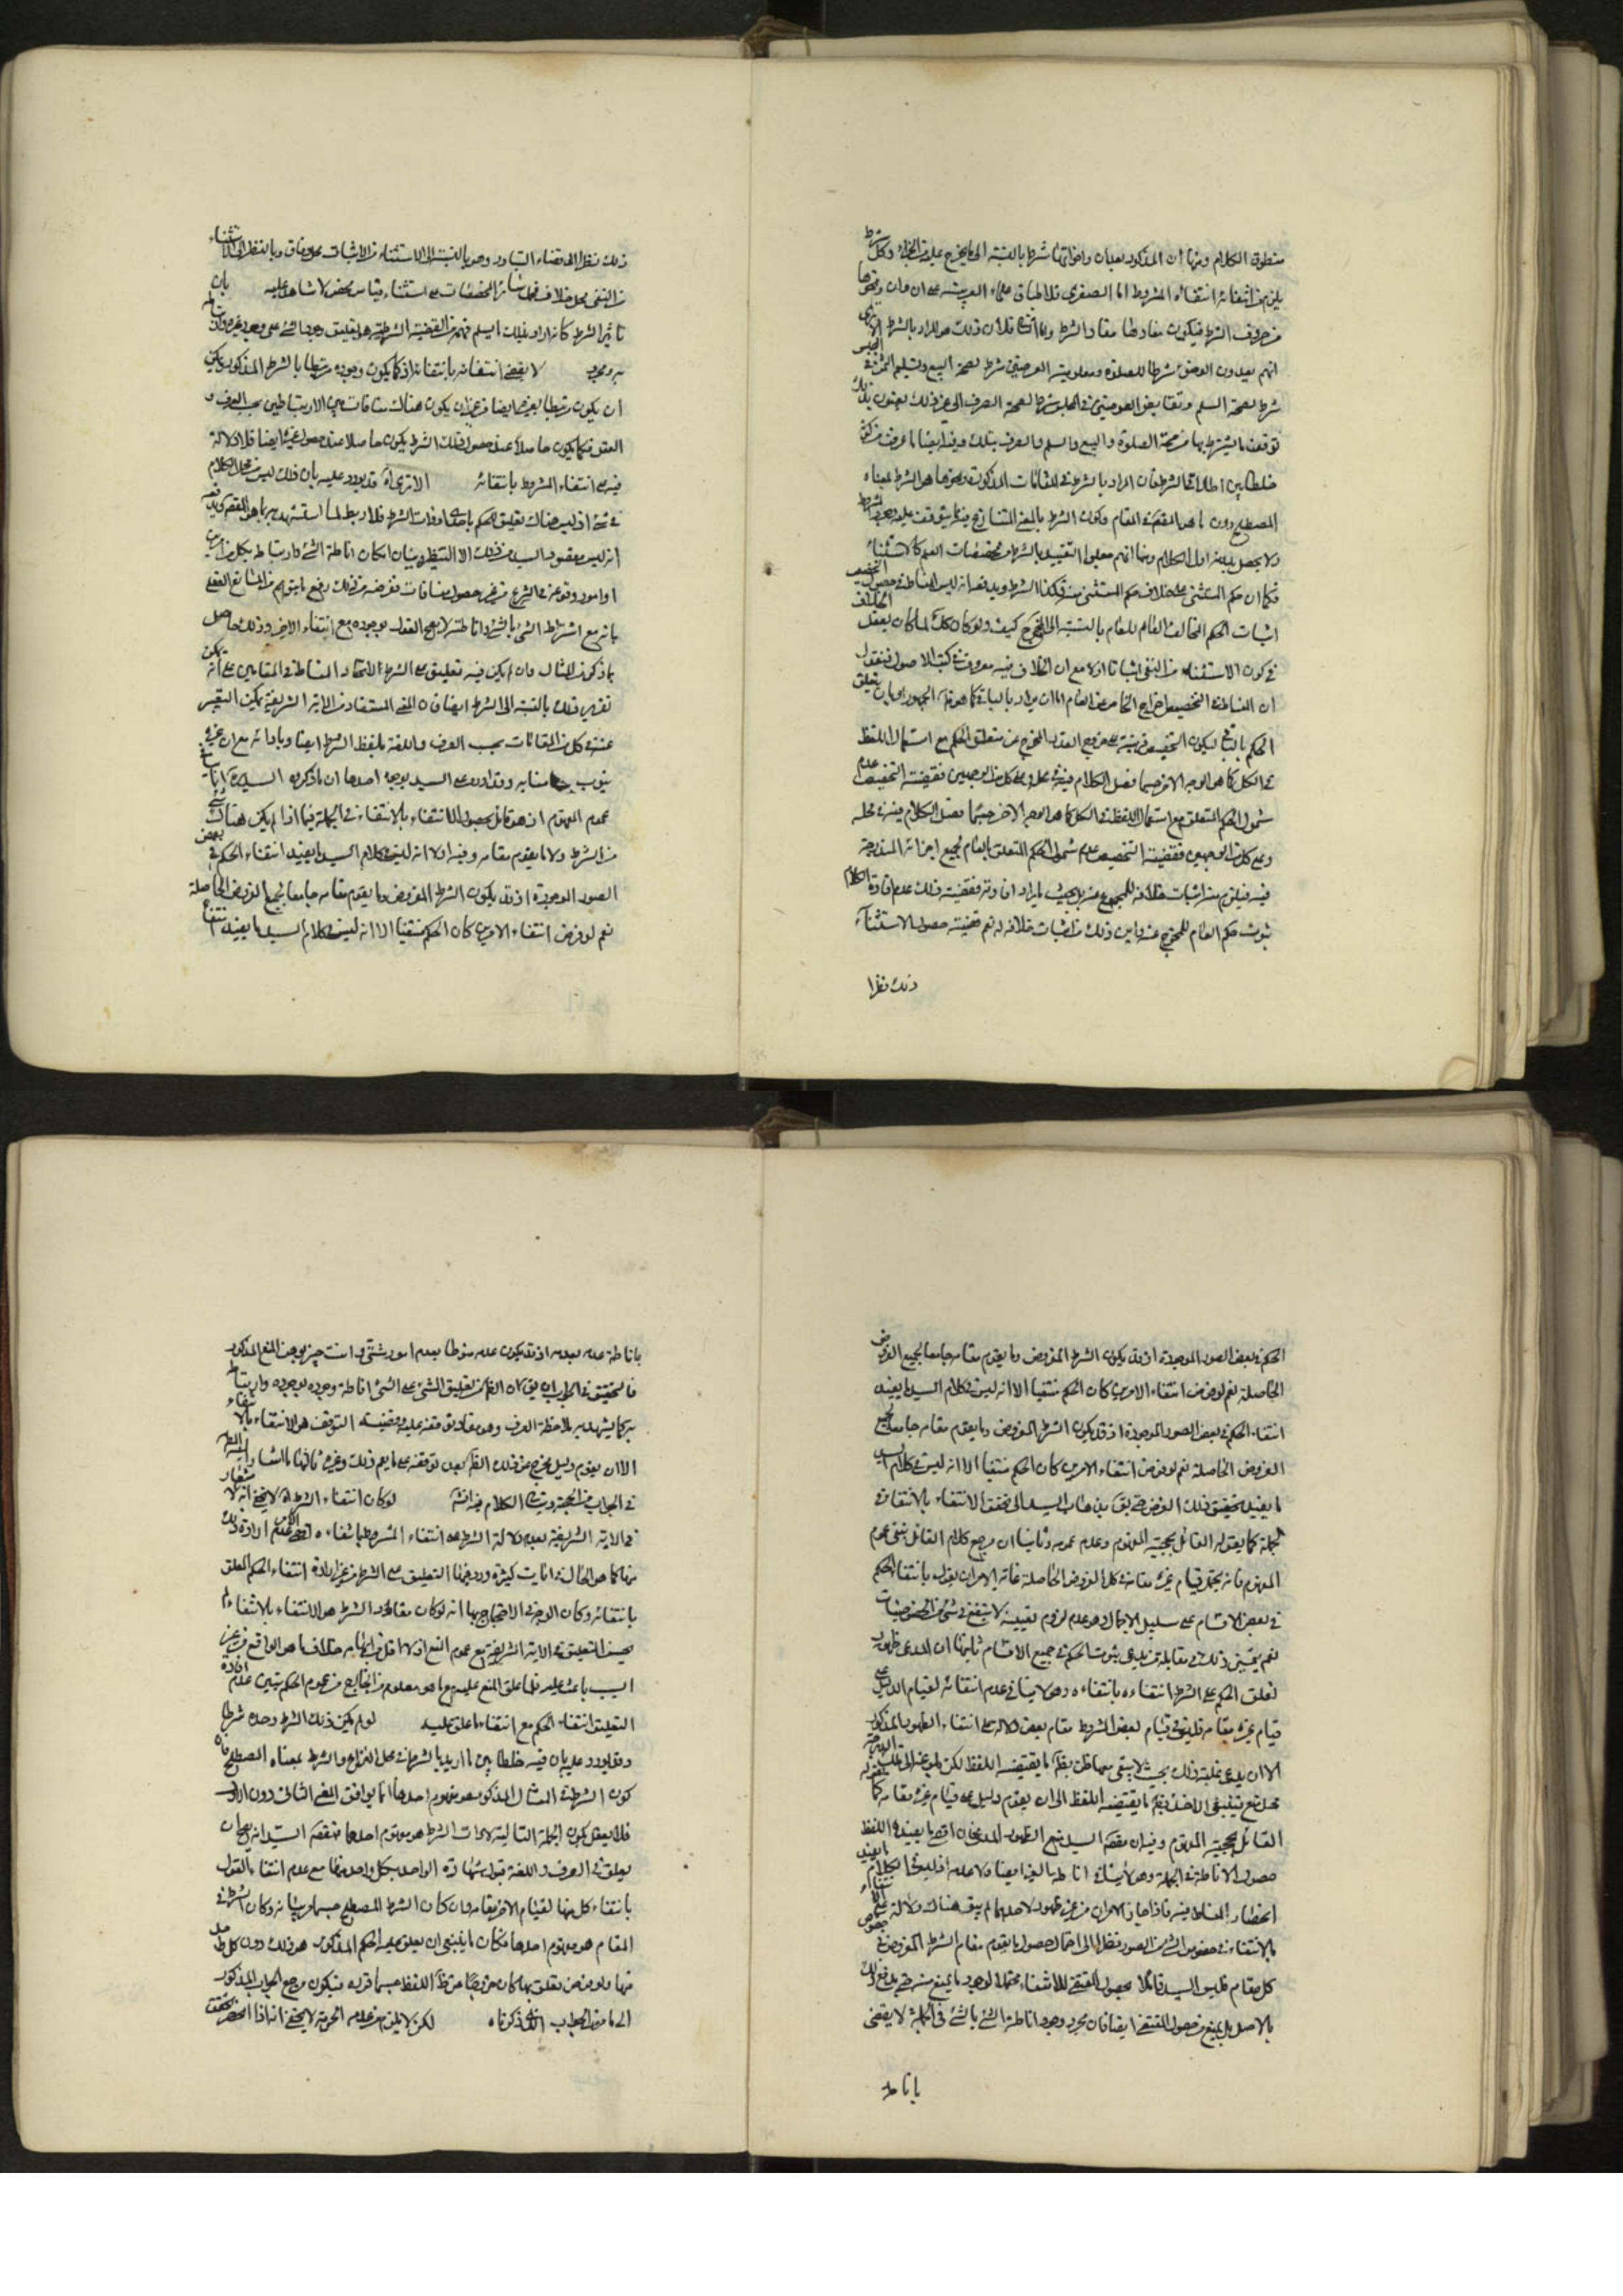 منطوق الكلام ومنها ان المذكور بعد ان واخواتها شرط بالنسبة الى ما يخرج عليه من الجزاء وكل شرط
يلزم من انتفائه انتفاء المشروط اما الصغرى فلاطباق علماء العربية على ان ان ونحوها
من حروف الشرط فيكون مفادها مفاد الشرط واما الكبرى فلان ذلك هو المراد بالشرط الا ترى
انهم يعدون الوضوء شرطا للصلوة ومعلومية العوضين شرط لصحة البيع وتسليم الثمن في المجلس
شرطا لصحة السلم وتقابض العوضين في المجلس شرطا لصحة الصرف الى غير ذلك يعنون بذلك
توقف ما يشترط بها من صحة الصلوة والبيع والسلم والصرف بتلك وفيه ايضا ما عرفت من كونه
خلطا بين اطلاقي الشرط فان المراد بالشرط في المقامات المذكورة ونحوها هو الشرط بمعناه
المصطلح دون ما هو المقصود في المقام وكون الشرط بالمعنى المتنازع فيه مما يتوقف عليه وجود المشروط
ولا يحصل بدونه اول الكلام ومنها انهم جعلوا التقييد بالشرط من مخصصات العام كالاستثناء
فكما ان حكم المستثنى على خلاف حكم المستثنى منه فكذا الشرط ويدفعه انه ليس المناط في حصول التخصيص
اثبات الحكم المخالف العام للعام بالنسبة الى المخرج كيف ولو كان كذلك لما كان يعقل الخلاف
في كون الاستثناء من النفي اثباتا اولا مع ان الخلاف فيه معروف في كتب الاصول فنقول
ان المناط في التخصيص اخراج الخاص من العام اما بان يراد بالباقي كما هو ظاهر الجمهور او بان يتعلق
الحكم بالباقي ليكون التخصيص قرينة على خروج القدر المخرج عن متعلق الحكم مع استعمال اللفظ
في الكل كما هو الوجه الاخر حسبما فصل الكلام فيه في محله وعلى كل من الوجهين فقضية التخصيص عدم
شمول الحكم المتعلق مع استعمال اللفظ في الكل كما هو الوجه الاخر حسبما فصل الكلام فيه في محله
وعلى كل من الوجهين فقضية التخصيص عدم شمول الحكم المتعلق بالعام لجميع اجزائه المندرجة
فيه فيلزم منه اثبات خلافه للمجموع من حيث يراد افادته فقضية ذلك عدم افادة الكلام
ثبوت حكم العام للمخرج عنه واين ذلك من اثبات خلافه له نعم قضية حصول الاستثناء
ذلك نظرا
ذلك نظرا الى قضاء التبادر وهو بالنسبة الى الاستثناء من الاثبات محل وفاق وبالنظر الى الاستثناء
من النفي محل خلاف فحمل سائر المخصصات على استثناء قياس محض لا شاهد عليه بان
تاثير الشرط كانه اراد بذلك ان يسلم فهم من القضية الشرطية هو تعليق وجود الشيء على وجود غيره وارتباطه
به ومجرد لا يقضي انتفائه بانتفائه اذ كما يكون وجوده مرتبطا بالشرط المذكور يمكن
ان يكون مرتبطا بغيره ايضا من غير ان يكون هناك منافات بين الارتباطين بحسب العرف و
العقل فكما يكون حاصلا عند حصول ذلك الشرط يكون حاصلا عند حصول غيره ايضا فلا دلالة
فيه على انتفاء المشروط بانتفائه الا ترى آه قد يورد عليه بان ذلك ليس من محل الكلام
في شيء اذ ليس هناك تعليق للحكم باحدى ادوات الشرط فلا ربط لما استشهد به بما هو المقصود ويدفعه
انه ليس مقصود السيد من ذلك الا التنظير وبيان امكان اناطة الشيء وارتباطه بكل من امرين
او امور ووقوعه في الشرع من غير حصول منافات فغرضه من ذلك رفع ما يتوهم من المانع العقلي
بانه مع اشتراط الشيء بالشيء واناطته لا يصح القول بوجوده مع انتفاء الاخر وذلك حاصل
بما ذكره من المثال وان لم يكن فيه تعليق على الشرط لاتحاد المناط في المقامين على انه يمكن
تقرير ذلك بالنسبة الى الشرط ايضا فان المعنى المستفاد من الآية الشريفة يمكن التعبير
عنه في كل من المقامات بحسب العرف واللغة بلفظ الشرط ايضا وباداته مع ان غيره
ينوب منابه وقد اورد على السيد بوجوه احدها ان ما ذكره السيد آه اثبات
عموم المفهوم اذ هو قائل بحصول الانتفاء بالانتفاء في الجملة فيما اذا لم يكن هناك شيء
من الشرط ولا ما يقوم مقامه وفيه اولا انه ليس في كلام السيد ما يفيد انتفاء الحكم في بعض
الصور الموجودة اذ قد يكون الشرط المفروض وما يقوم مقامه جامعا لجميع الفروض الحاصلة
نعم لو فرض انتفاء الامرين كان الحكم منتفيا الا انه ليس في كلام السيد ما يفيد انتفاء
الحكم في بعض الصور الموجودة اذ قد يكون الشرط المفروض وما يقوم مقامه جامعا لجميع الفروض
الحاصلة نعم لو فرض انتفاء الامرين كان الحكم منتفيا الا انه ليس في كلام السيد ما يفيد
انتفاء الحكم في بعض الصور الموجودة اذ قد يكون الشرط المفروض وما يقوم مقامه جامعا لجميع
الفروض الحاصلة نعم لو فرض انتفاء الامرين كان الحكم منتفيا الا انه ليس في كلام السيد
ما يفيد تحقيق ذلك الفرض حتى يق بذهاب السيد الى تحقق الانتفاء بالانتفاء في
الجملة كما يقوله القائل بحجية المفهوم وعدم عمومه وثانيا ان مرجع كلام القائل بنفي عموم
المفهوم فانه يحتمل قيام غيره مقامه في كل الفروض الحاصلة غاية الامر ان يقول بانتفاء الحكم
في بعض الاقسام على سبيل الاجمال وهو عدم لزوم تعيينه لا ينفع في شيء من الخصوصيات
نعم يتبين ذلك في مقابلة من يدعي ثبوت الحكم في جميع الاقسام ثانيها ان المدعى ظهور
تعلق الحكم على الشرط انتفاءه بانتفاءه وهو لا ينافي عدم انتفائه لقيام الدليل على
قيام غيره مقامه فليس في قيام بعض الشروط مقام بعض دلالة على انتفاء الظهور المذكور
الا ان يدعى غلبة ذلك بحيث لا يبقى معها ظن بظاهر ما يقتضيه اللفظ لكن بلوغه الى تلك الدرجة
محل منع فينبغي الاخذ بظاهر ما يقتضيه اللفظ الى ان يقوم دليل على قيام غيره مقامه كما يقوله
القائل بحجية المفهوم وفيه ان مقصود السيد منع الظهور المدعى فان اقصى ما يفيده اللفظ
حصول الاناطة في الجملة وهو لا ينافي اناطة بالغير ايضا ولا عدمه اذ ليس في الكلام ما يفيد
انحصار المناط فيه فاذا جاز الامران من غير ظهور لاحدهما لم يبق هناك دلالة على الانتفاء
بالانتفاء في خصوص شيء من الصور نظرا الى احتمال حصول ما يقوم مقام الشرط المفروض في خصوص
كل مقام فليس السيد قائلا بحصول المقتضي للانتفاء محتملا لوجود ما يمنع منه حتى يدفع ذلك
بالاصل بل يمنع من حصول المقتضي ايضا فان مجرد وجود اناطة الشيء بالشيء في الجملة لا يقضي
باناطة
باناطة عدمه بعدمه اذ قد يكون عدمه منوطا بعدم امور شتى وانت خبير بوهن المنع المذكور
فالتحقيق في الجواب ان يق ان الظاهر من تعليق الشيء على الشيء اناطة وجوده بوجوده وارتباطه
به كما يشهد به ملاحظة العرف وهو مفاد توقفه عليه وقضية التوقف هو الانتفاء بالانتفاء
الا ان يقوم دليل يخرج عن ذلك الظاهر كعدم توقفه على ما يعم ذلك وغيره ثالثها ما اشار اليه المص
في الجواب من الحجة وسيأتي الكلام فيه انش لو كان انتفاء الشرط آه لا يخفى انه لا اشعار
في الآية الشريفة بعدم دلالة الشرط على انتفاء المشروط بانتفاءه اقصى الامر عدم ارادة ذلك
منها كما هو الحال في آيات كثيرة ورد فيها التعليق على الشرط من غير ارادة انتفاء الحكم المعلق
بانتفائه وكان الوجه في الاحتجاج بها انه لو كان مفاد الشرط هو الانتفاء بالانتفاء لم
يحسن التعليق في الآية الشريفة مع عموم المنع اذ لا اقل من ايهامه خلاف ما هو الواقع من غير
السبب باعث عليه فلما علق المنع عليه مع ما هو معلوم من الخارج من عموم الحكم تبين عدم افادة
التعليق انتفاء الحكم مع انتفاء ما علق عليه لو لم يكن ذلك الشرط وحده شرطا
وقد يورد عليه بان فيه خلطا بين ما اريد بالشرط في محل النزاع والشرط بمعناه المصطلح فان
كون الشرط في المثال المذكور هو مفهوم احدهما انما يوافق المعنى الثاني دون الاول
فلا يعقل كون الجملة التالية لادات الشرط هو مفهوم احدهما فمقصود السيد انه يصح ان
يعلق في العرف واللغة قبول شهادة الواحد بكل واحد منهما مع عدم انتفاء القول
بانتفاء كل منها لقيام الاخر مقامه وان كان الشرط المصطلح حسبما مر بيانه وكان الشرط في
المقام هو مفهوم احدهما فكان ينبغي ان يعلق عليه الحكم المذكور هو ذلك دون كل واحد
منها ولو فرض تعلق بها كان خروجا عن ظاهر اللفظ حسبما قرره فيكون مرجع الجواب المذكور
الى ما مر من الجواب الذي ذكرناه لكن لا يلزم من عدم الحرمة لا يخفى انه اذا انحصر تحقق